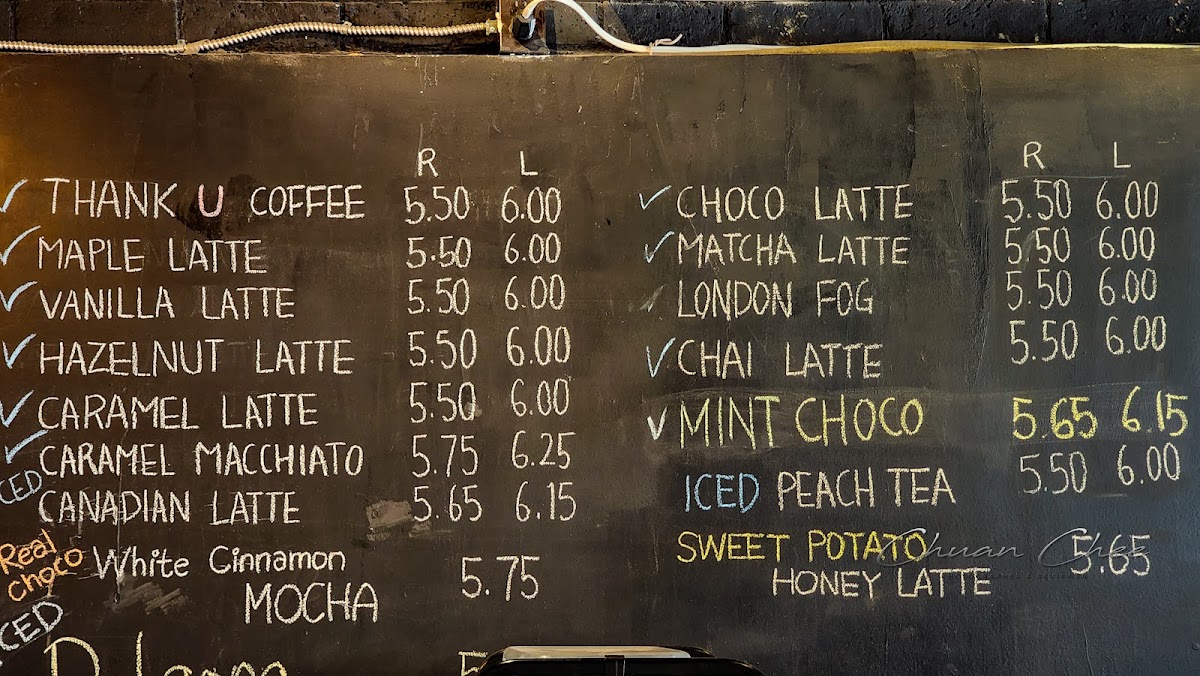 R L
THANK U COFFEE 5.50 6.00
MAPLE LATTE 5.50 6.00
VANILLA LATTE 5.50 6.00
HAZELNUT LATTE 5.50 6.00
CARAMEL LATTE 5.50 6.00
CARAMEL MACCHIATO 5.75 6.25
ICED
CANADIAN LATTE 5.65 6.15
Real
choco
White Cinnamon
MOCHA 5.75
ICED
R L
CHOCO LATTE 5.50 6.00
MATCHA LATTE 5.50 6.00
LONDON FOG 5.50 6.00
CHAI LATTE 5.50 6.00
MINT CHOCO 5.65 6.15
ICED PEACH TEA 5.50 6.00
SWEET POTATO
HONEY LATTE 5.65
Chuan Chee